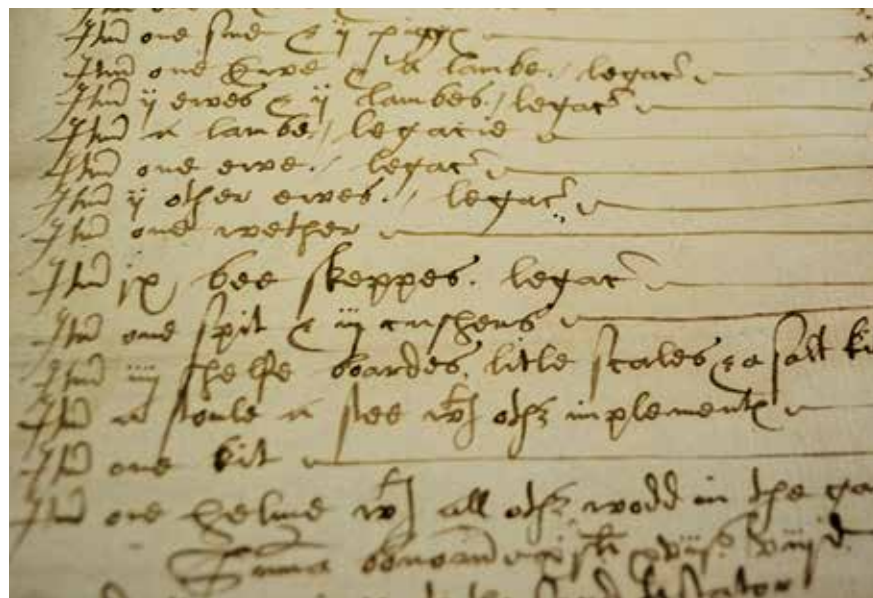 Itm one sue & ij pigges
Itm one Ewe & a lambe // legac
Itm ij ewes & ij lambes // legac
Itm a lambe // legacie
Itm one ewe // legac
Itm ij other ewes // legac
Itm one wether
Itm ix bee skeppes. legac
Itm one spit & iij cushens
Itm iiij shelfe boardes, litle scales & a salt ki
Itm a stoule a stee wth othr implementes
Itm one kit
Itm one helme wth all othr wodd in the ga
Summa bonorum xviijs viijd